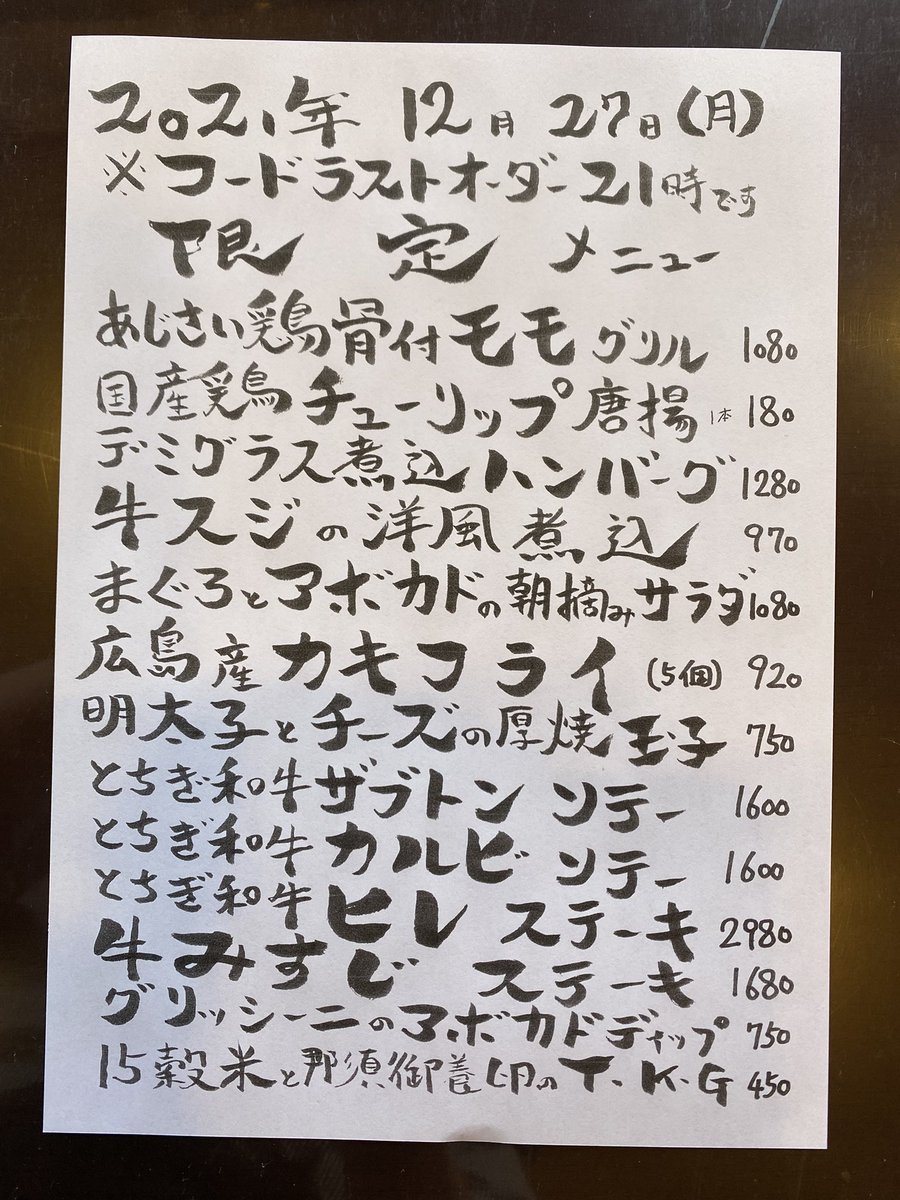 2021年 12月 27日(月)
※フードラストオーダー21時です
限 定 メニュー
あじさい鶏骨付モモグリル 1080
国産鶏チューリップ唐揚 1本 180
デミグラス煮込ハンバーグ 1280
牛スジの洋風煮込 970
まぐろとアボカドの朝摘みサラダ 1080
広島産カキフライ (5個) 920
明太子とチーズの厚焼玉子 750
とちぎ和牛ザブトンソテー 1600
とちぎ和牛カルビソテー 1600
とちぎ和牛ヒレステーキ 2980
牛みすじステーキ 1680
グリッシーニのアボカドディップ 750
15穀米と那須御養卵のT.K.G 450